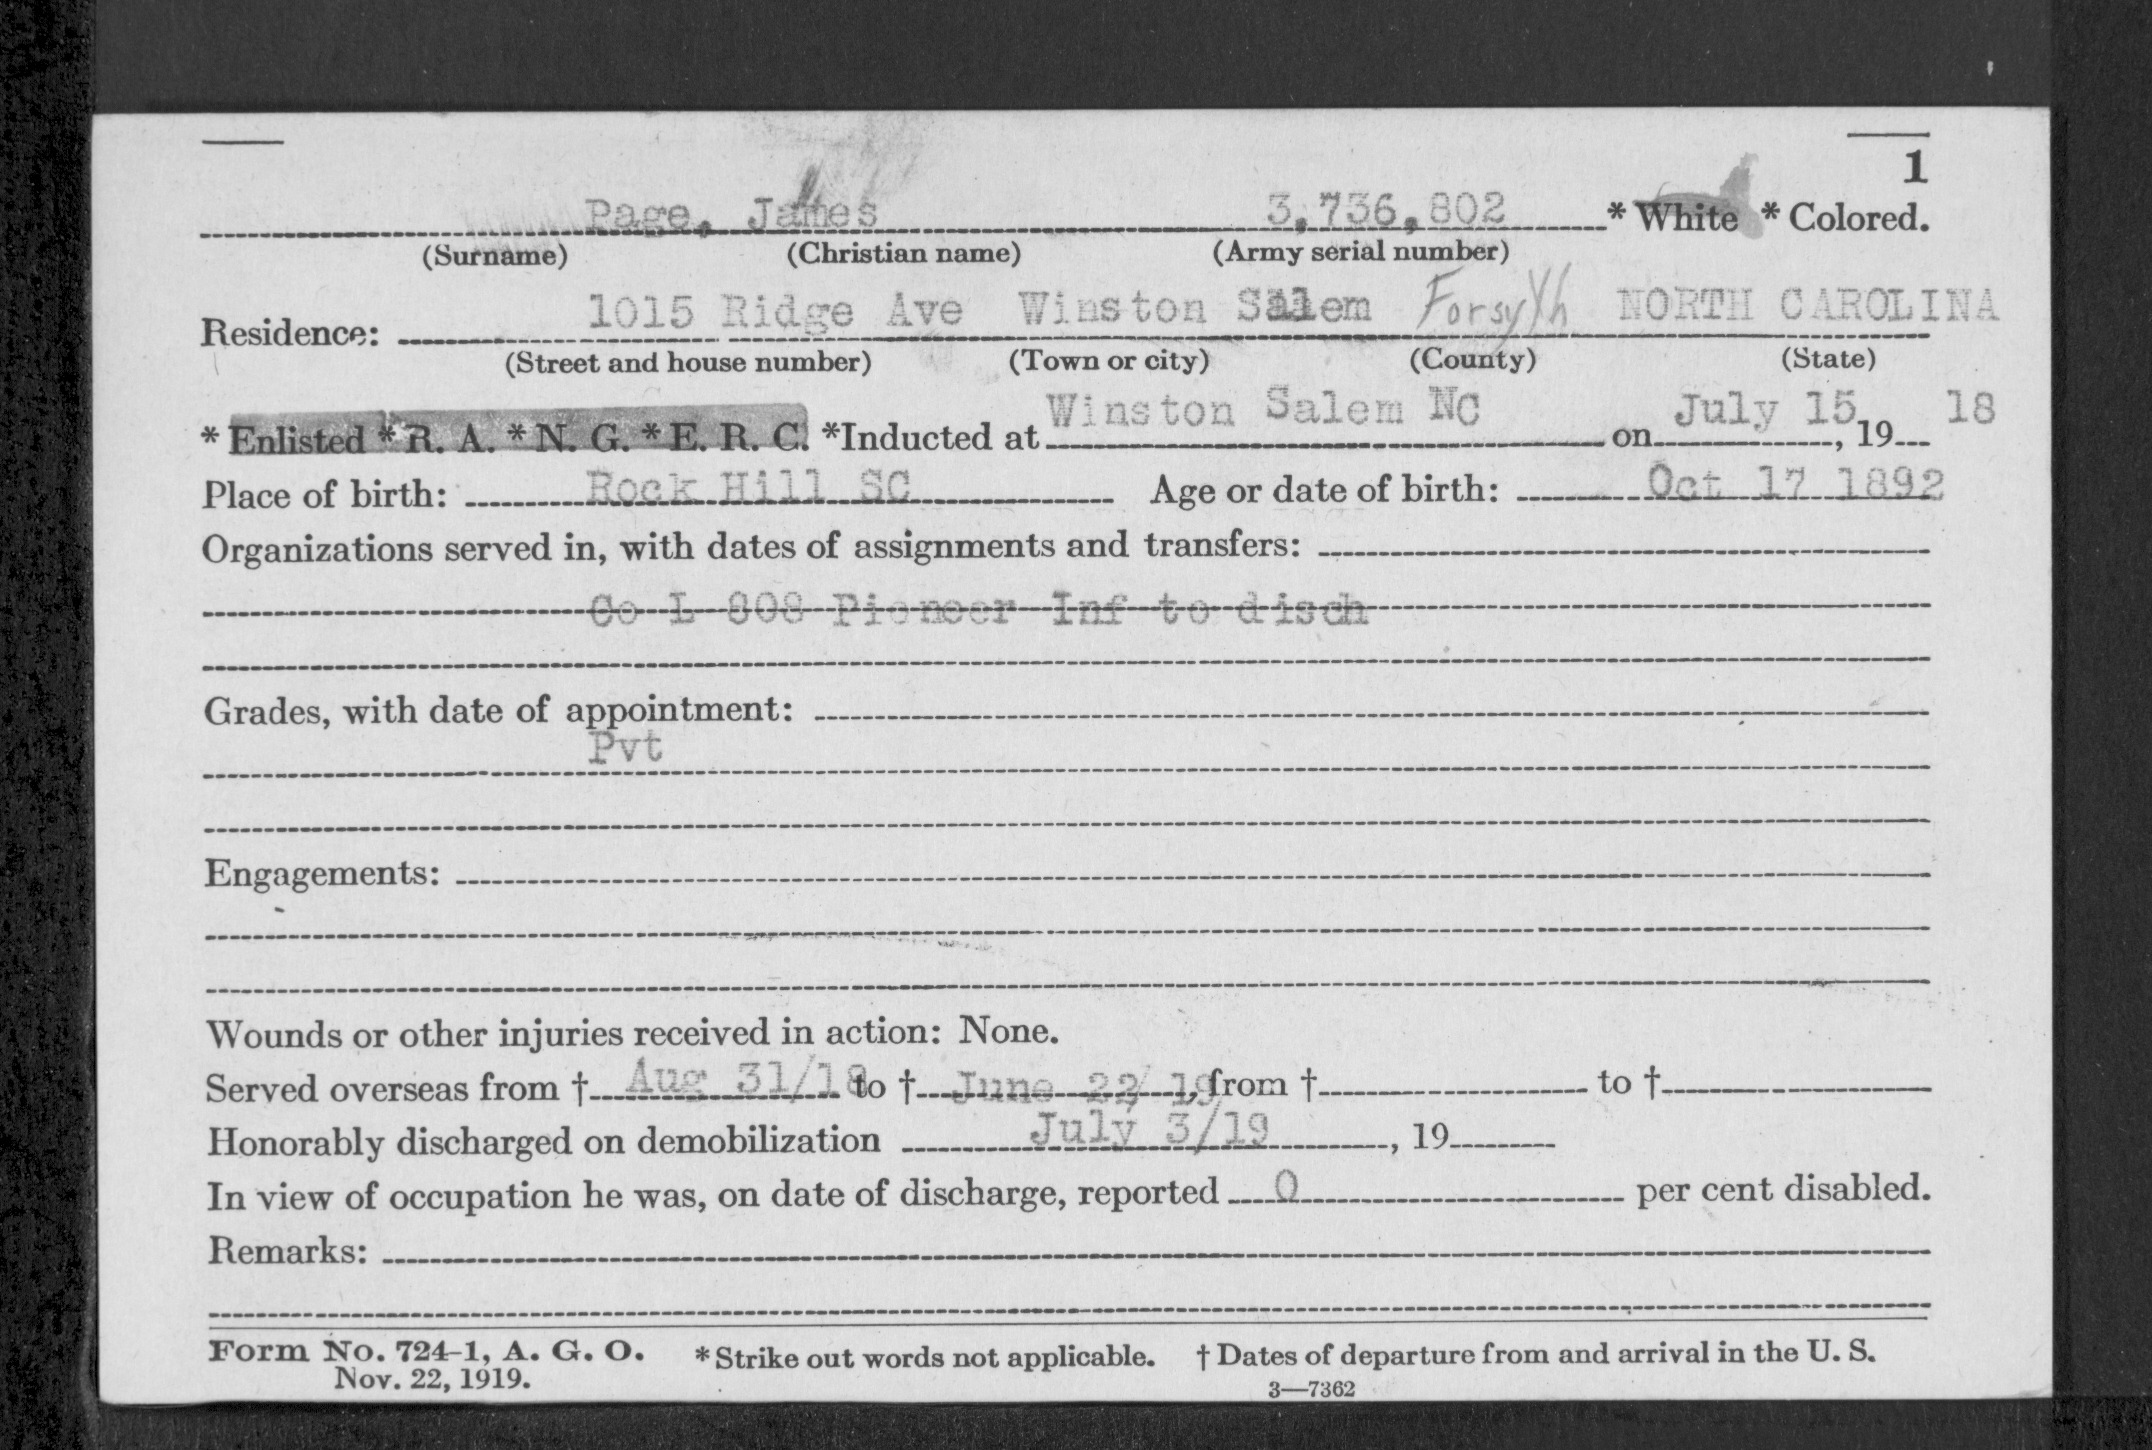 1
Page, James 3,736,802 * White * Colored.
(Surname) (Christian name) (Army serial number)
Residence: 1015 Ridge Ave Winston Salem Forsyth NORTH CAROLINA
(Street and house number) (Town or city) (County) (State)
* Enlisted * R. A. * N. G. * E. R. C. *Inducted at Winston Salem NC on July 15, 19 18
Place of birth: Rock Hill SC Age or date of birth: Oct 17 1892
Organizations served in, with dates of assignments and transfers:
Co L 808 Pioneer Inf to disch
Grades, with date of appointment:
Pvt
Engagements:
Wounds or other injuries received in action: None.
Served overseas from † Aug 31/18 to † June 22/19, from † to †
Honorably discharged on demobilization July 3/19, 19
In view of occupation he was, on date of discharge, reported 0 per cent disabled.
Remarks:
Form No. 724-1, A. G. O. * Strike out words not applicable. † Dates of departure from and arrival in the U. S.
Nov. 22, 1919. 3—7362